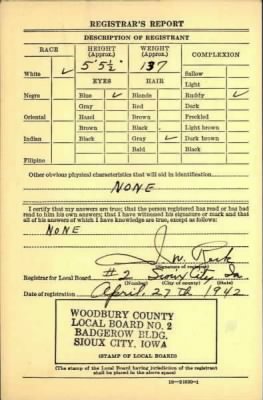 REGISTRAR'S REPORT
DESCRIPTION OF REGISTRANT
RACE HEIGHT (Approx.) WEIGHT (Approx.) COMPLEXION
White ✓ 5'5½" 137 Sallow
EYES HAIR Light
Negro Blue ✓ Blonde Ruddy ✓
Gray Red Dark
Oriental Hazel Brown Freckled
Brown Black Light brown
Indian Black Gray ✓ Dark brown
Bald Black
Filipino
Other obvious physical characteristics that will aid in identification
NONE
I certify that my answers are true; that the person registered has read or has had
read to him his own answers; that I have witnessed his signature or mark and that
all of his answers of which I have knowledge are true, except as follows:
NONE
(Signature of registrar)
Registrar for Local Board #2 Sioux City, Ia
(Number) (City or county) (State)
Date of registration April, 27th 1942
WOODBURY COUNTY
LOCAL BOARD NO. 2
BADGEROW BLDG.
SIOUX CITY, IOWA
(STAMP OF LOCAL BOARD)
(The stamp of the Local Board having jurisdiction of the registrant
shall be placed in the above space)
16—21630-1